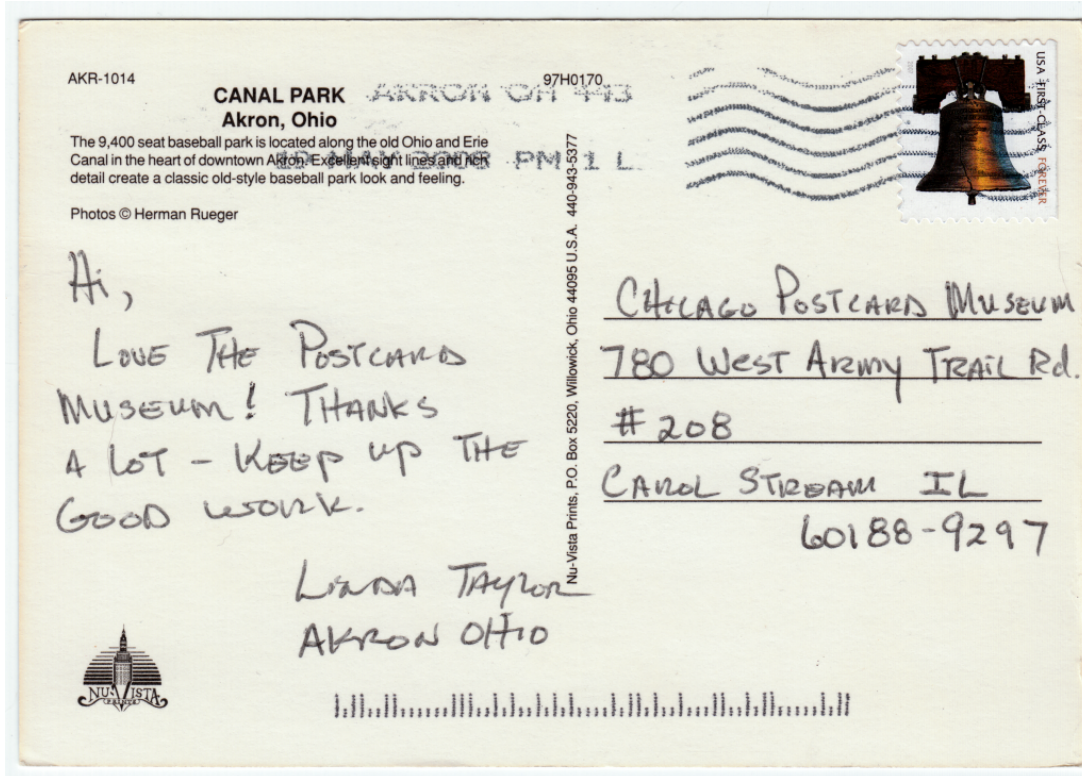 AKR-1014
97H0170
CANAL PARK
Akron, Ohio
AKRON OH 443
The 9,400 seat baseball park is located along the old Ohio and Erie
Canal in the heart of downtown Akron. Excellent sight lines and rich
detail create a classic old-style baseball park look and feeling.
2008 PM 1 L
Photos © Herman Rueger
USA FIRST-CLASS FOREVER
Hi,
LOVE THE POSTCARD
MUSEUM! THANKS
A LOT - KEEP UP THE
GOOD WORK.
LINDA TAYLOR
AKRON OHIO
Nu-Vista Prints, P.O. Box 5220, Willowick, Ohio 44095 U.S.A. 440-943-5377
CHICAGO POSTCARD MUSEUM
780 WEST ARMY TRAIL Rd.
#208
CAROL STREAM IL
60188-9297
NU-VISTA
PRINTS